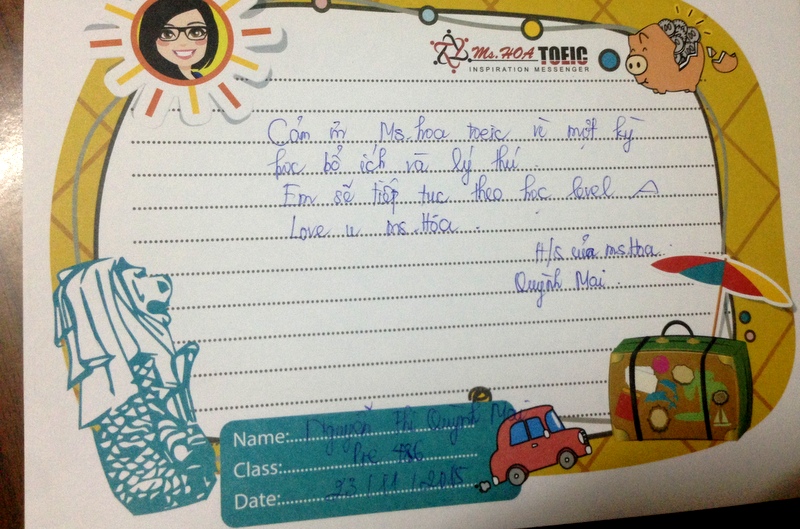 Ms. HOA TOEIC
INSPIRATION MESSENGER
Cảm ơn Ms. hoa toeic về một kỳ
học bổ ích và lý thú.
Em sẽ tiếp tục theo học level A
Love u ms. Hóa.
H/s của ms. Hoa.
Quỳnh Mai.
Name: Nguyễn Thị Quỳnh Mai
Class: Pre 486
Date: 23/11/2015